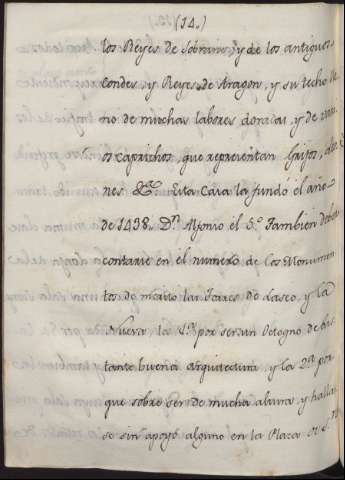 (14.)
los Reyes de Sobrarve, y de los antiguos
condes, y Reyes de Aragon, y su techo lle
no de muchas labores doradas, y de vari
os caprichos, que representan Grifos, 
nes &c. Esta Casa la fundó el año
de 1438. Dn. Alfonso el 5.º Tambien debe
contarse en el numero de los Monumen
tos de merito las Torres de Laseo, y la
Nueva la 1.ª por ser un Octogno de bas
tante buena arquitectura, y la 2.ª por
que sobre ser de mucha altura, y halla
se sin apoyo alguno en la Plaza